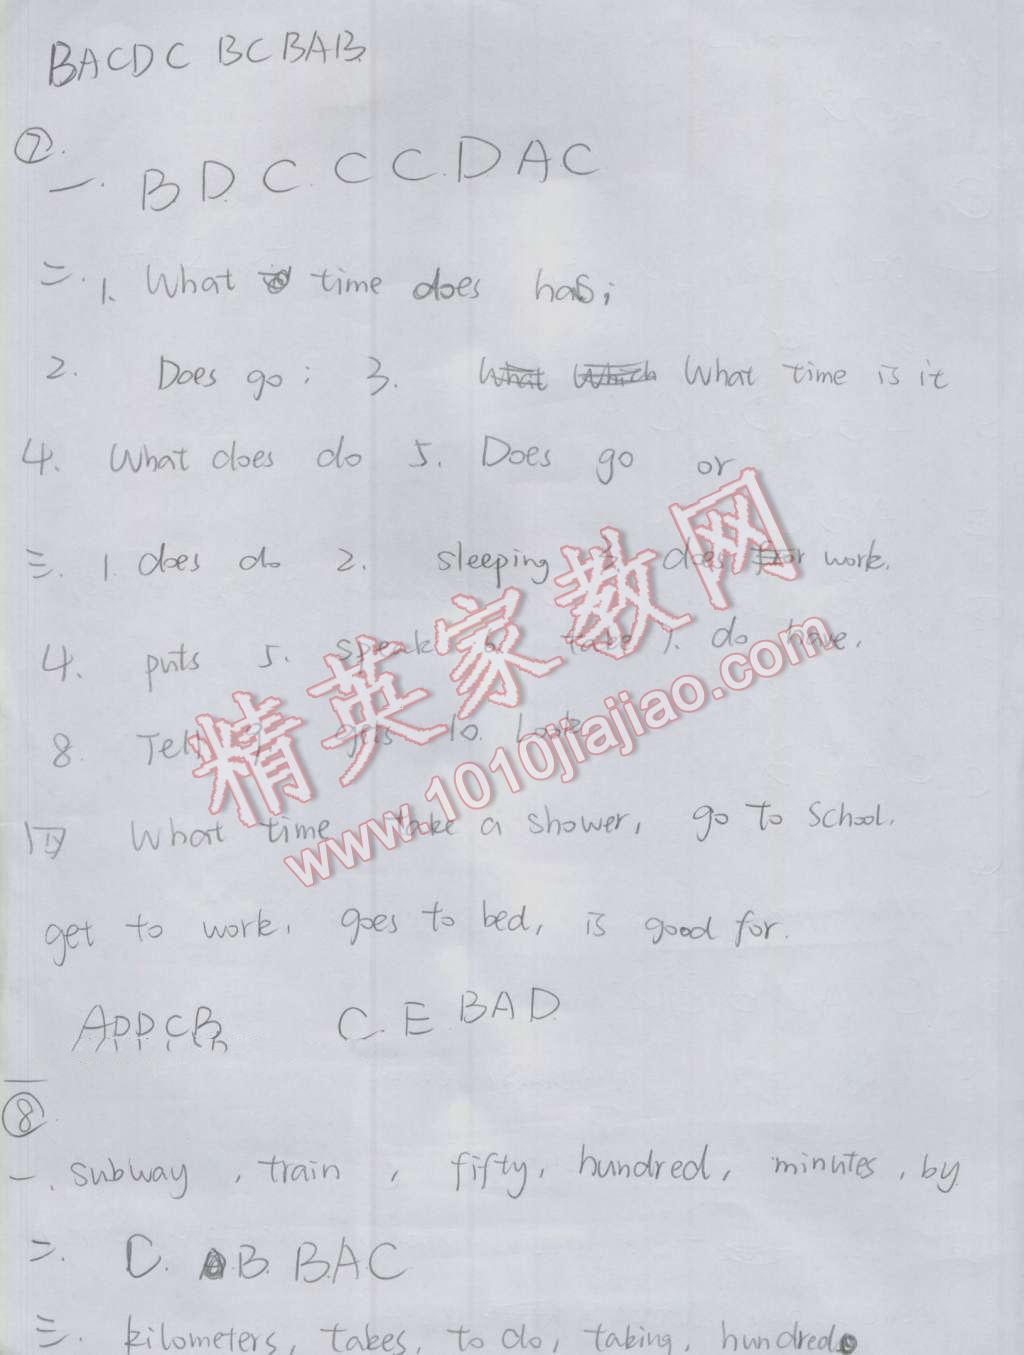 BACDC BCBAB
⑦.
一. B D. C. C C. D A C
二. 1. What time does has;
2. Does go; 3. What Which What time is it
4. What does do 5. Does go or
三. 1. does do 2. sleeping 3. does for work.
4. puts 5. speak 6. take 7. do have.
8. Tell 9. gets 10. Look
四 What time take a shower, go to school.
get to work, goes to bed, is good for.
ADDCB C. E. BAD
⑧.
一. subway, train, fifty, hundred, minutes, by
二. C. B. B.A.C
三. kilometers, takes, to do, taking, hundred
精英家教网
www.1010jiajiao.com